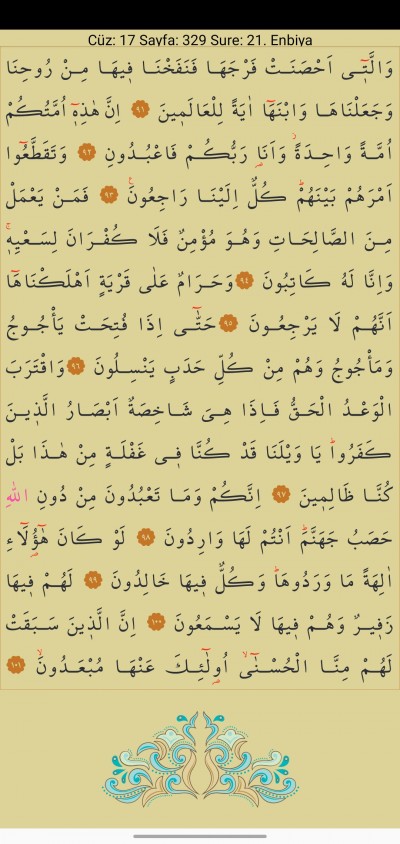 Cüz: 17 Sayfa: 329 Sure: 21. Enbiya
وَالَّت۪ٓى اَحْصَنَتْ فَرْجَهَا فَنَفَخْنَا ف۪يهَا مِنْ رُوحِنَا
وَجَعَلْنَاهَا وَابْنَهَٓا اٰيَةً لِلْعَالَم۪ينَ ٩١ اِنَّ هٰذِه۪ٓ اُمَّتُكُمْ
اُمَّةً وَاحِدَةًۘ وَاَنَا۬ رَبُّكُمْ فَاعْبُدُونِ ٩٢ وَتَقَطَّعُٓوا
اَمْرَهُمْ بَيْنَهُمْۜ كُلٌّ اِلَيْنَا رَاجِعُونَ۟ ٩٣ فَمَنْ يَعْمَلْ
مِنَ الصَّالِحَاتِ وَهُوَ مُؤْمِنٌ فَلَا كُفْرَانَ لِسَعْيِه۪ۚ
وَاِنَّا لَهُ كَاتِبُونَ ٩٤ وَحَرَامٌ عَلٰى قَرْيَةٍ اَهْلَكْنَاهَٓا
اَنَّهُمْ لَا يَرْجِعُونَ ٩٥ حَتّٰٓى اِذَا فُتِحَتْ يَأْجُوجُ
وَمَأْجُوجُ وَهُمْ مِنْ كُلِّ حَدَبٍ يَنْسِلُونَ ٩٦ وَاقْتَرَبَ
الْوَعْدُ الْحَقُّ فَاِذَا هِىَ شَاخِصَةٌ اَبْصَارُ الَّذ۪ينَ
كَفَرُواۜ يَا وَيْلَنَا قَدْ كُنَّا ف۪ى غَفْلَةٍ مِنْ هٰذَا بَلْ
كُنَّا ظَالِم۪ينَ ٩٧ اِنَّكُمْ وَمَا تَعْبُدُونَ مِنْ دُونِ اللّٰهِ
حَصَبُ جَهَنَّمَۜ اَنْتُمْ لَهَا وَارِدُونَ ٩٨ لَوْ كَانَ هٰٓؤُ۬لَٓاءِ
اٰلِهَةً مَا وَرَدُوهَاۜ وَكُلٌّ ف۪يهَا خَالِدُونَ ٩٩ لَهُمْ ف۪يهَا
زَف۪يرٌ وَهُمْ ف۪يهَا لَا يَسْمَعُونَ ١٠٠ اِنَّ الَّذ۪ينَ سَبَقَتْ
لَهُمْ مِنَّا الْحُسْنٰٓىۙ اُو۬لٰٓئِكَ عَنْهَا مُبْعَدُونَۙ ١٠١